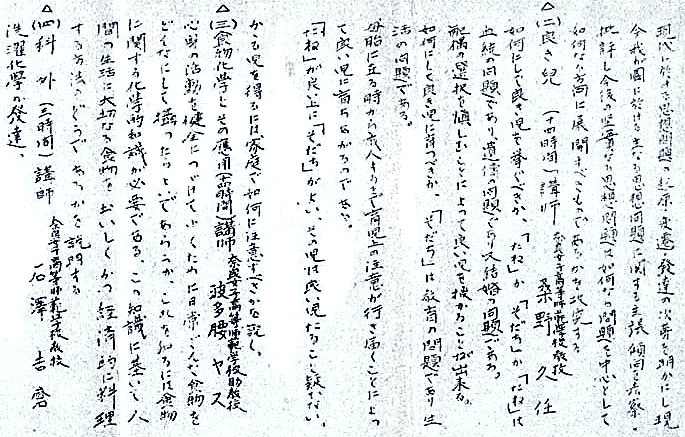 現代に於ける思想問題の起原、変遷、発達の次第を明かにし現
今我が国に於ける主なる思想問題に関する主張傾向を考察・
批評し今後の堅実なる思想問題は如何なる問題を中心として
如何なる方向に展開すべきものであるかを攻究する
△(二)良き児 (十四時間) 講師 奈良女子高等師範学校教授 桑野久任
如何にして良き児を挙ぐべきか、「たね」か「そだち」か「たね」は
血統の問題であり遺伝の問題であり又結婚の問題である。
配偶の選択を慎しむことによって良い児を儲かることが出来る。
如何にして良き児に育つべきか、「そだち」は教育の問題であり生
活の問題である。
母胎に在る時から成人するまで育児上の注意が行き届くことによっ
て良い児に育ちあがるのである。
「たね」が良い上に「そだち」がよい、その児は良い児たること疑ひない、
かゝる児を得るには家庭で如何に注意すべきかを説く。
△(三)食物化学とその應用(十四時間)講師 奈良女子高等師範学校助教授 波多腰ヤス
心身の活動を健全につゞけてゆくために日常どんな食物を
どんなにして摂つたらよいであらうか、これを知るには食物
に関する化学的知識が必要である、この知識に基いて人
間の生活に大切なる食物をおいしくかつ経済的に料理
する方法はどうであるかを説明する
△(四)科外 (三時間) 講師 奈良女子高等師範学校教授 石澤吉磨
洗濯化學の發達、